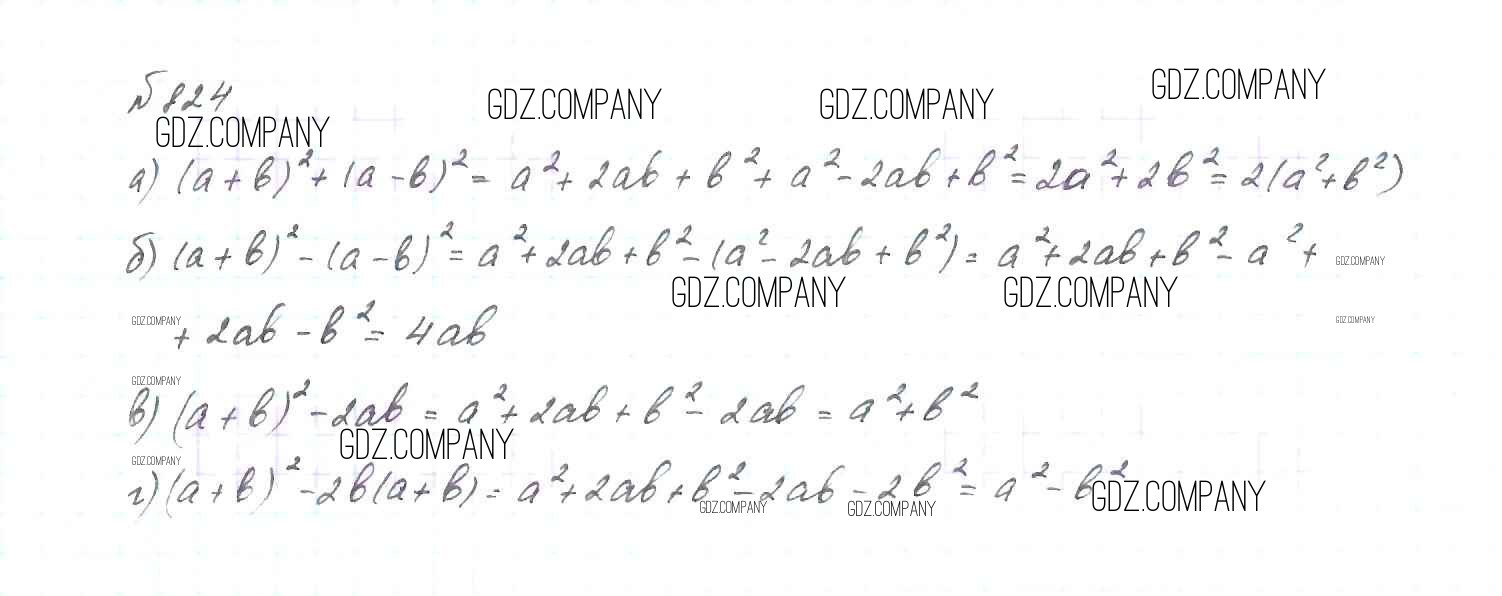 № 824
GDZ.COMPANY GDZ.COMPANY GDZ.COMPANY GDZ.COMPANY
а) (a + b)² + (a - b)² = a² + 2ab + b² + a² - 2ab + b² = 2a² + 2b² = 2(a² + b²)
б) (a + b)² - (a - b)² = a² + 2ab + b² - (a² - 2ab + b²) = a² + 2ab + b² - a² +
GDZ.COMPANY
GDZ.COMPANY GDZ.COMPANY
GDZ.COMPANY GDZ.COMPANY
+ 2ab - b² = 4ab
GDZ.COMPANY
в) (a + b)² - 2ab = a² + 2ab + b² - 2ab = a² + b²
GDZ.COMPANY
GDZ.COMPANY
г) (a + b)² - 2b(a + b) = a² + 2ab + b² - 2ab - 2b² = a² - b²
GDZ.COMPANY GDZ.COMPANY GDZ.COMPANY